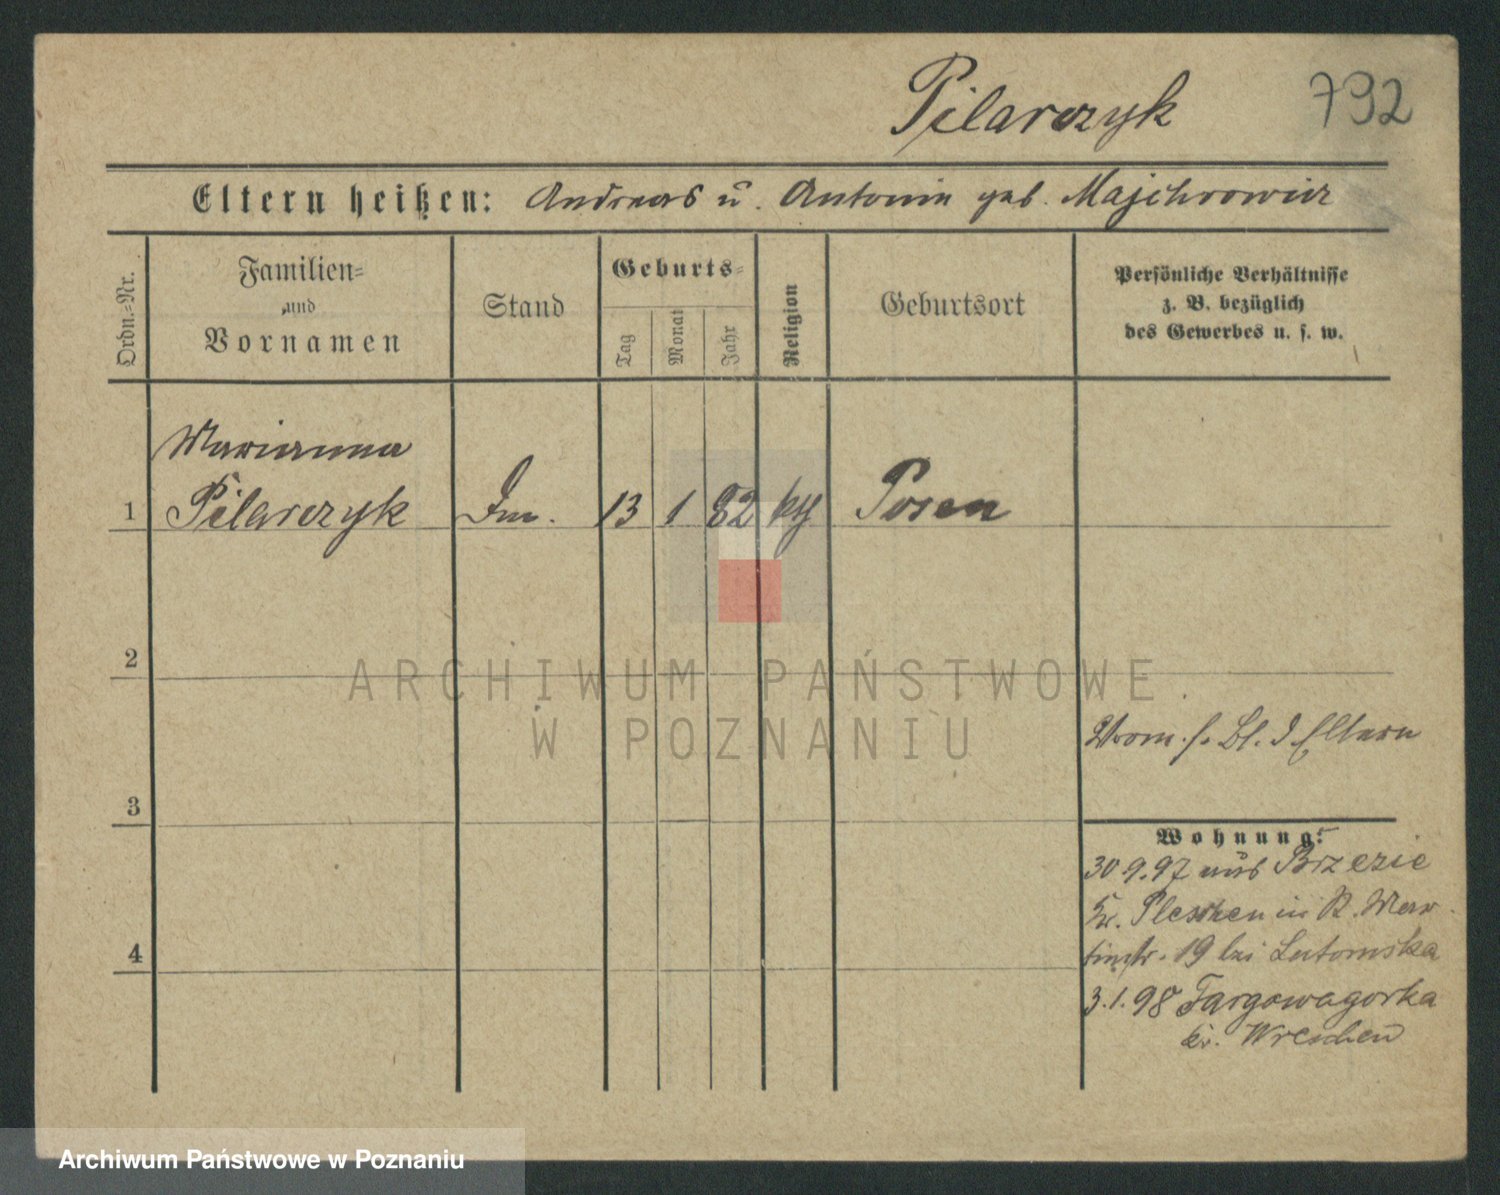 Pilarczyk 792
Eltern heißen: Andreas u. Antonie geb. Majchrowicz
Ordn.=Nr.
Familien=
und
Vornamen
Stand
Geburts=
Tag
Monat
Jahr
Religion
Geburtsort
Persönliche Verhältnisse
z. B. bezüglich
des Gewerbes u. s. w.
Marianna
1 Pilarczyk 13 1 82 kth Posen
2
ARCHIWUM PAŃSTWOWE
W POZNANIU
s. Bl. d Eltern
3
Wohnung:
30 9.97 aus Brzezie
Kr. Pleschen in R. Mar
tinstr. 19 bei Lutomska
4
3.1.98 Targowagorka
Kr. Wreschen
Archiwum Państwowe w Poznaniu